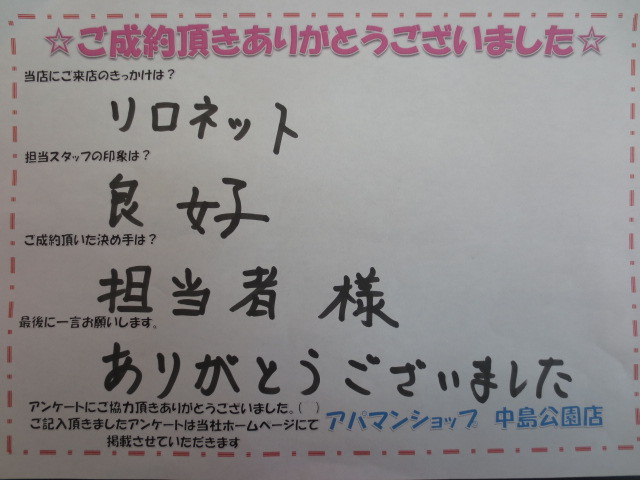 ☆ご成約頂きありがとうございました☆
当店にご来店のきっかけは？
リロネット
担当スタッフの印象は？
良好
ご成約頂いた決め手は？
担当者様
最後に一言お願いします。
ありがとうございました
アンケートにご協力頂きありがとうございました。(　)
ご記入頂きましたアンケートは当社ホームページにて
掲載させていただきます
アパマンショップ 中島公園店